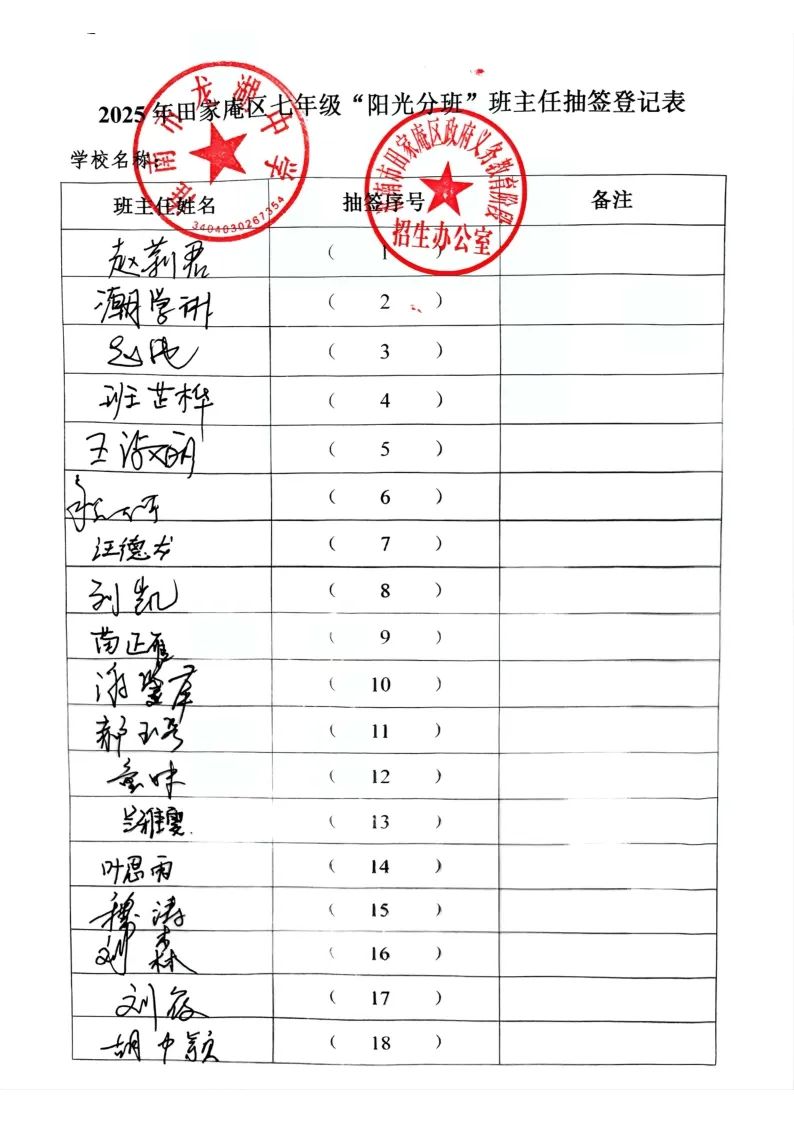 2025年田家庵区七年级“阳光分班”班主任抽签登记表
学校名称:
淮南市龙湖中学
3404030267354
淮南市田家庵区政府义务教育阶段
招生办公室
班主任姓名 抽签序号 备注
赵莉君 ( 1 )
潮学 ( 2 )
( 3 )
班芷桦 ( 4 )
王淑娴 ( 5 )
( 6 )
汪德龙 ( 7 )
刘凯 ( 8 )
苗正雁 ( 9 )
( 10 )
郝玉 ( 11 )
童味 ( 12 )
兰雅雯 ( 13 )
叶思雨 ( 14 )
穆涛 ( 15 )
刘森 ( 16 )
刘筱 ( 17 )
胡中颖 ( 18 )